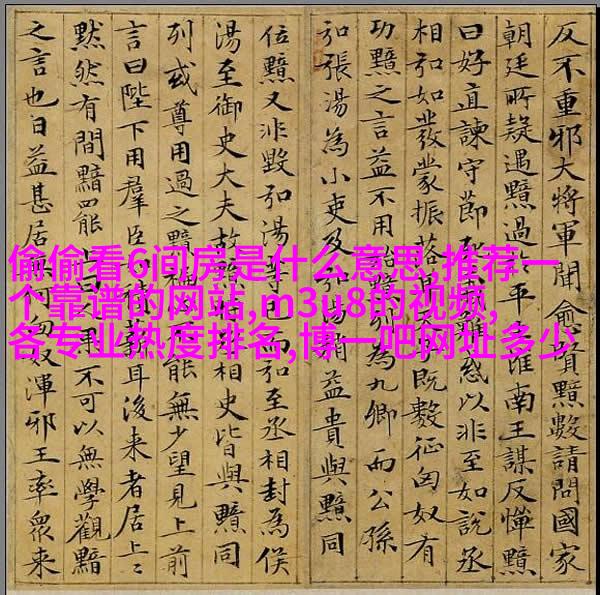 反不重邪大將軍聞愈賢黯數請問國家
朝廷所疑遇黯過於平淮南王謀反憚黯
曰好直諫守節死惑以非至如說丞
相弘如發蒙振落既數征匈奴有
功黯之言益不用始黯列為九卿而公孫
弘張湯為小吏及弘湯稍益貴與黯同
位黯又非毀弘湯等而弘至丞相封為侯
湯至御史大夫故黯相史皆與黯同
列或尊用過之黯褊能無少望見上前
言曰陛下用羣臣耳後來者居上〻
默然有間黯罷不可以無學觀黯
之言也日益甚居匈奴渾邪王率衆來
偷偷看6间房是什么意思,推荐一
个靠谱的网站,m3u8的视频,
各专业热度排名,博一吧网址多少